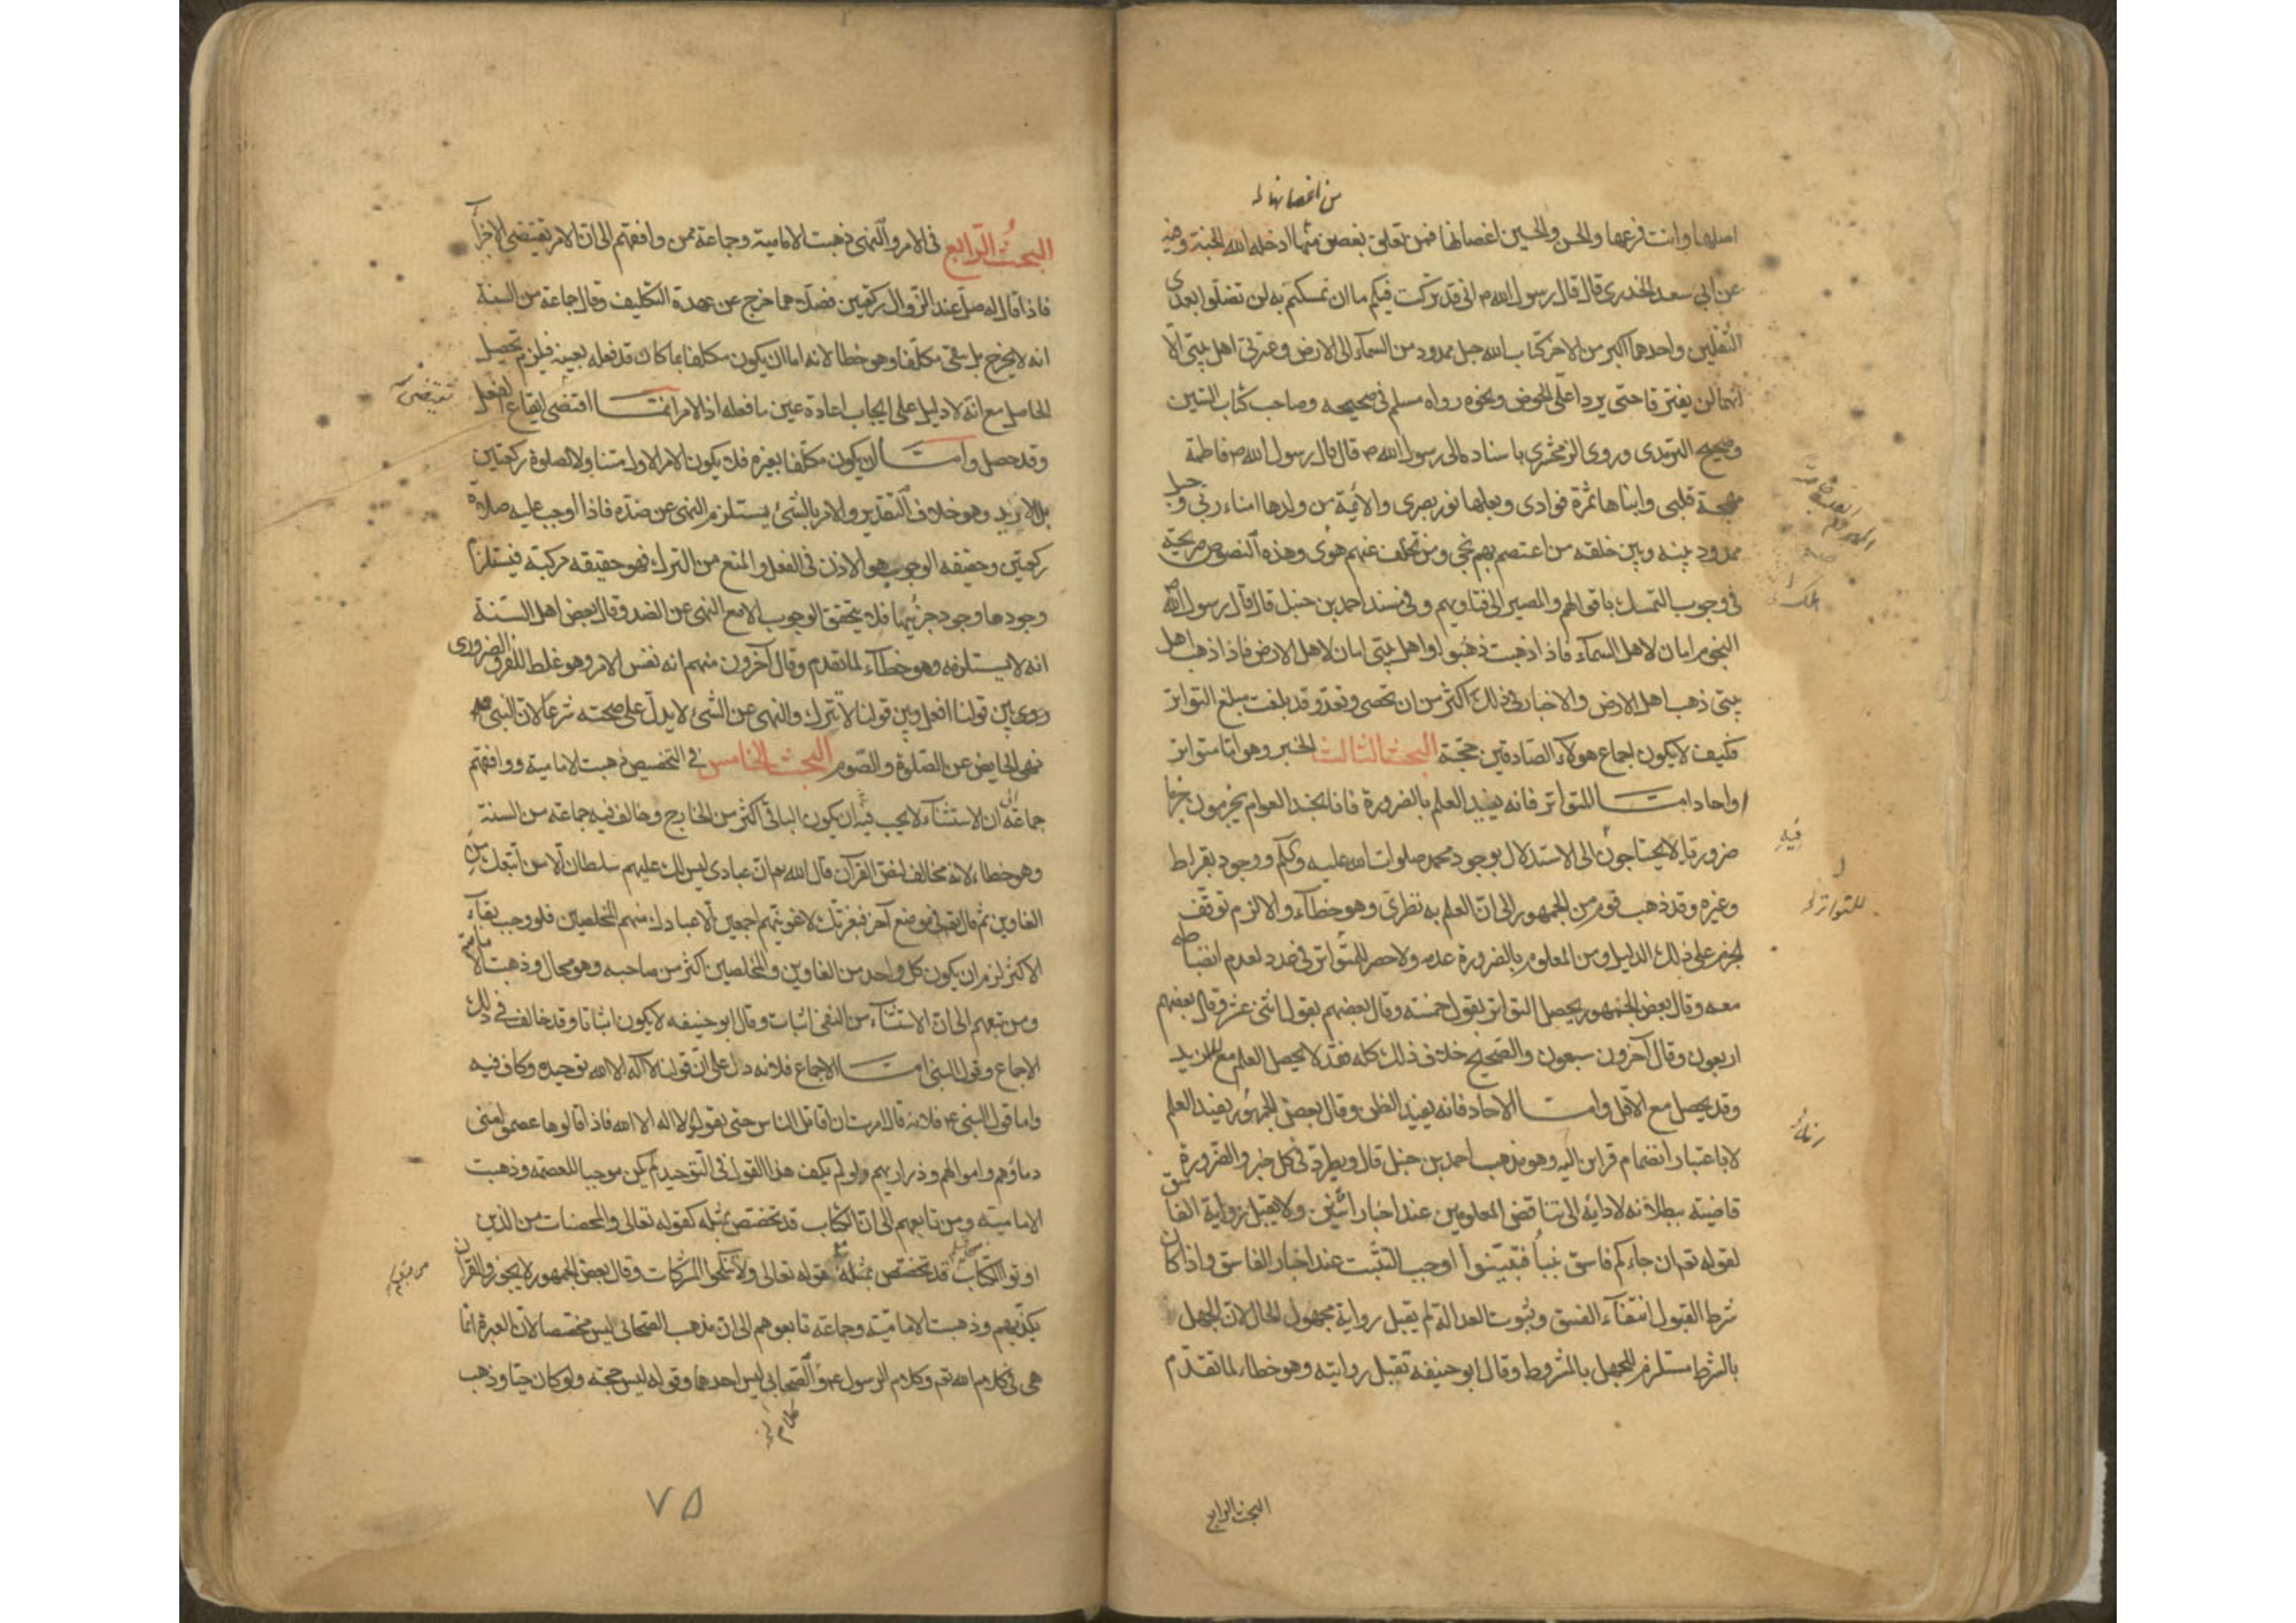 من اغصانها
اصلها وانت فرعها والحسن والحسين اغصانها فمن تعلق بغصن منها ادخله الله الجنة وفيه
عن ابي سعد الخدري قال قال رسول الله ص اني قد تركت فيكم ما ان تمسكتم به لن تضلوا بعدي
الثقلين واحدهما اكبر من الاخر كتاب الله حبل ممدود من السمآء الى الارض وعترتي اهل بيتي الا
انهما لن يفترقا حتى يردا علي الحوض ونحوه رواه مسلم في صحيحه وصاحب كتاب السنن
وصحيح الترمذي وروى الزمخشري باسناده الى رسول الله ص قال قال رسول الله ص فاطمة
مهجة قلبي وابناها ثمرة فوادي وبعلها نور بصري والائمة من ولدها امناء ربي وحبل
ممدود بينه وبين خلقه من اعتصم بهم نجى ومن تخلف عنهم هوى وهذه النصوص صريحة
في وجوب التمسك باقوالهم والمصير الى فتاويهم وفي مسند احمد بن حنبل قال قال رسول الله ص
النجوم امان لاهل السمآء فاذا ذهبت ذهبوا واهل بيتي امان لاهل الارض فاذا ذهب اهل
بيتي ذهب اهل الارض والاخبار في ذلك اكثر من ان تحصى وتعد وقد بلغت مبلغ التواتر
فكيف لا يكون اجماع هولاء الصادقين حجة البحث الثالث الخبر وهو اما متواتر
او احاد اما المتواتر فانه يفيد العلم بالضرورة فانا نجد العوام يجزمون جزما
ضروريا لا يحتاجون الى الاستدلال بوجود محمد صلوات الله عليه وآله ووجود بقراط
وغيره وقد ذهب قوم من الجمهور الى ان العلم به نظري وهو خطآء والا لزم توقف
الجزم على ذلك الدليل ومن المعلوم بالضرورة عدمه ولا حصر للمتواتر في عدد لعدم انضباطه
معه وقال بعض الجمهور يحصل التواتر بقول خمسة وقال بعضهم بقول اثنى عشر وقال بعضهم
اربعون وقال آخرون سبعون والصحيح خلاف ذلك كله فقد لا يحصل العلم مع المزيد
وقد يحصل مع الاقل واما الاحاد فانه يفيد الظن وقال بعض الجمهور يفيد العلم
لا باعتبار انضمام قراين اليه وهو مذهب احمد بن حنبل قال ويطرد في كل خبر والضرورة
قاضية ببطلانه لادائه الى تناقض المعلومين عند اخبار اثنين ولا يقبل رواية الفاسق
لقوله تع ان جاءكم فاسق بنبأ فتبينوا اوجب التثبت عند اخبار الفاسق واذا كان
شرط القبول انتفآء الفسق وثبوت العدالة لم يقبل رواية مجهول الحال لان الجهل
بالشرط مستلزم للجهل بالمشروط وقال ابو حنيفه تقبل روايته وهو خطاء لما تقدم
فيه
للتواتر
البحث الرابع
البحث الرابع في الامر والنهي ذهبت الامامية وجماعة ممن وافقهم الى ان الامر يقتضي الاجزآء
فاذا قال له صل عند الزوال ركعتين فصلاهما خرج عن عهدة التكليف وقال جماعة من السنة
انه لا يخرج بل يبقى مكلفا وهو خطا لانه اما ان يكون مكلفا بما كان قد فعله بعينه فيلزم تحصيل
الحاصل مع انه لا دليل على ايجاب اعادة عين ما فعله اذ الامر انما اقتضى ايقاع الفعل
يقتضي
وقد حصل واما ان يكون مكلفا بغيره فلا يكون الامر الاول متناولا لصلوة ركعتين
بل لازيد وهو خلاف التقدير والامر بالشئ يستلزم النهي عن ضده فاذا اوجب عليه صلاة
ركعتين وحقيقه الوجوب هو الاذن في الفعل والمنع من الترك فهو حقيقه مركبة فيستلزم
وجودها وجود جزئيها فلا يتحقق الوجوب الا مع النهي عن الضد وقال بعض اهل السنة
انه لا يستلزمه وهو خطآء لما تقدم وقال آخرون منهم انه نفس الامر وهو غلط للفرق الضروري
بين قولنا افعل وبين قولنا لا تترك والنهي عن الشئ لا يدل على صحته شرعا لان النبي ص
نهى الحايض عن الصلوة والصوم البحث الخامس في التخصيص ذهبت الامامية ووافقهم
جماعة الى ان الاستثنآء لا يجب فيه ان يكون الباقي اكثر من الخارج وخالف فيه جماعة من السنة
وهو خطاء لانه مخالف لنص القرآن قال الله تع ان عبادي ليس لك عليهم سلطان الا من اتبعك من
الغاوين ثم قال تعالى في موضع آخر فبعزتك لاغوينهم اجمعين الا عبادك منهم المخلصين فلو وجب بقآء
الاكثر لزم ان يكون كل واحد من الغاوين والمخلصين اكثر من صاحبه وهو محال وذهبت الامامية
ومن تبعهم الى ان الاستثنآء من النفي اثبات وقال ابو حنيفه لا يكون اثباتا وقد خالف في ذلك
الاجماع وقول النبي اما الاجماع فلانه دل على ان قولنا لا اله الا الله توحيد وكاف فيه
واما قول النبي ع فلانه قال امرت ان اقاتل الناس حتى يقولوا لا اله الا الله فاذا قالوها عصموا مني
دماؤهم واموالهم وذراريهم ولو لم يكف هذا القول في التوحيد لم يكن موجبا للعصمة وذهبت
الامامية ومن تابعهم الى ان الكتاب قد تخصص بمثله كقوله تعالى والمحصنات من الذين
اوتوا الكتاب قد تخصص بمثله بقوله تعالى ولا تنكحوا المشركات وقال بعض الجمهور لا يجوز والقرآن
من قبلكم
يكذبهم وذهبت الامامية وجماعة تابعوهم الى ان مذهب الصحابي ليس مخصصا لان العبرة انما
هي في كلام الله تع وكلام الرسول ع والصحابي ليس احدهما وقوله ليس حجة ولو كان حيا وذهب
كلام
٧٥